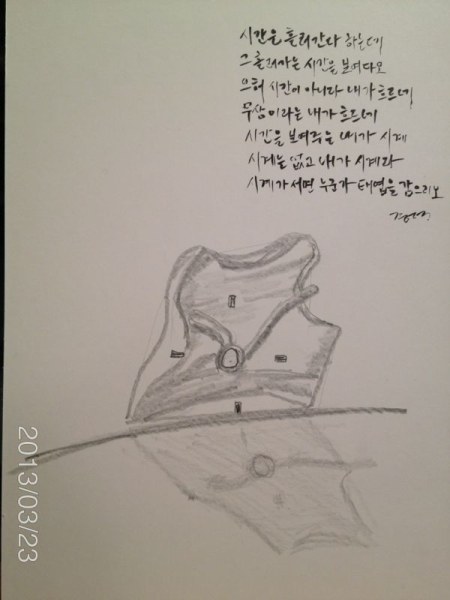 시간은 흘러간다 하는데
그 흘러가는 시간을 보여다오
시간이 아니다 내가 흐르네
무상이라는 내가 흐르네
시간을 보여주는 내가 시계
시계는 없고 내가 시계라
시계가 서면 누군가 태엽을 감으리오
2013/03/23